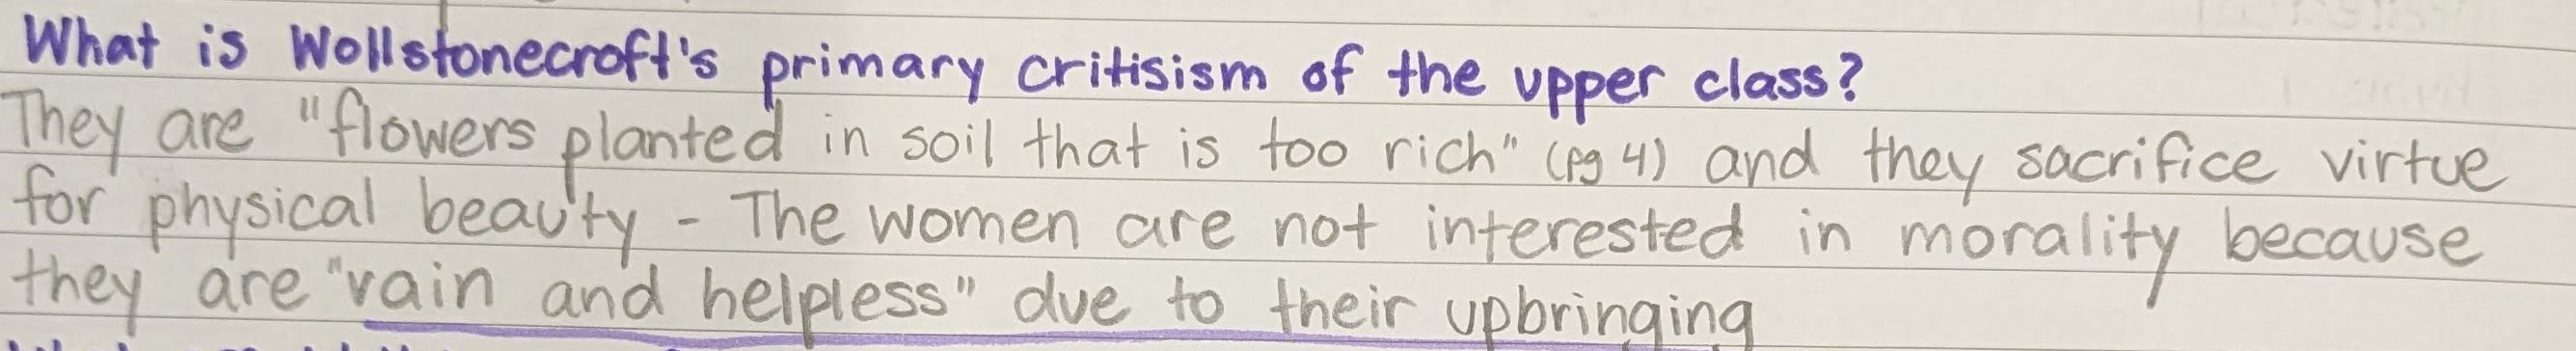 What is Wollstonecroft's primary critisism of the upper class?
They are "flowers planted in soil that is too rich" (pg 4) and they sacrifice virtue
for physical beauty - The women are not interested in morality because
they are "vain and helpless" due to their upbringing